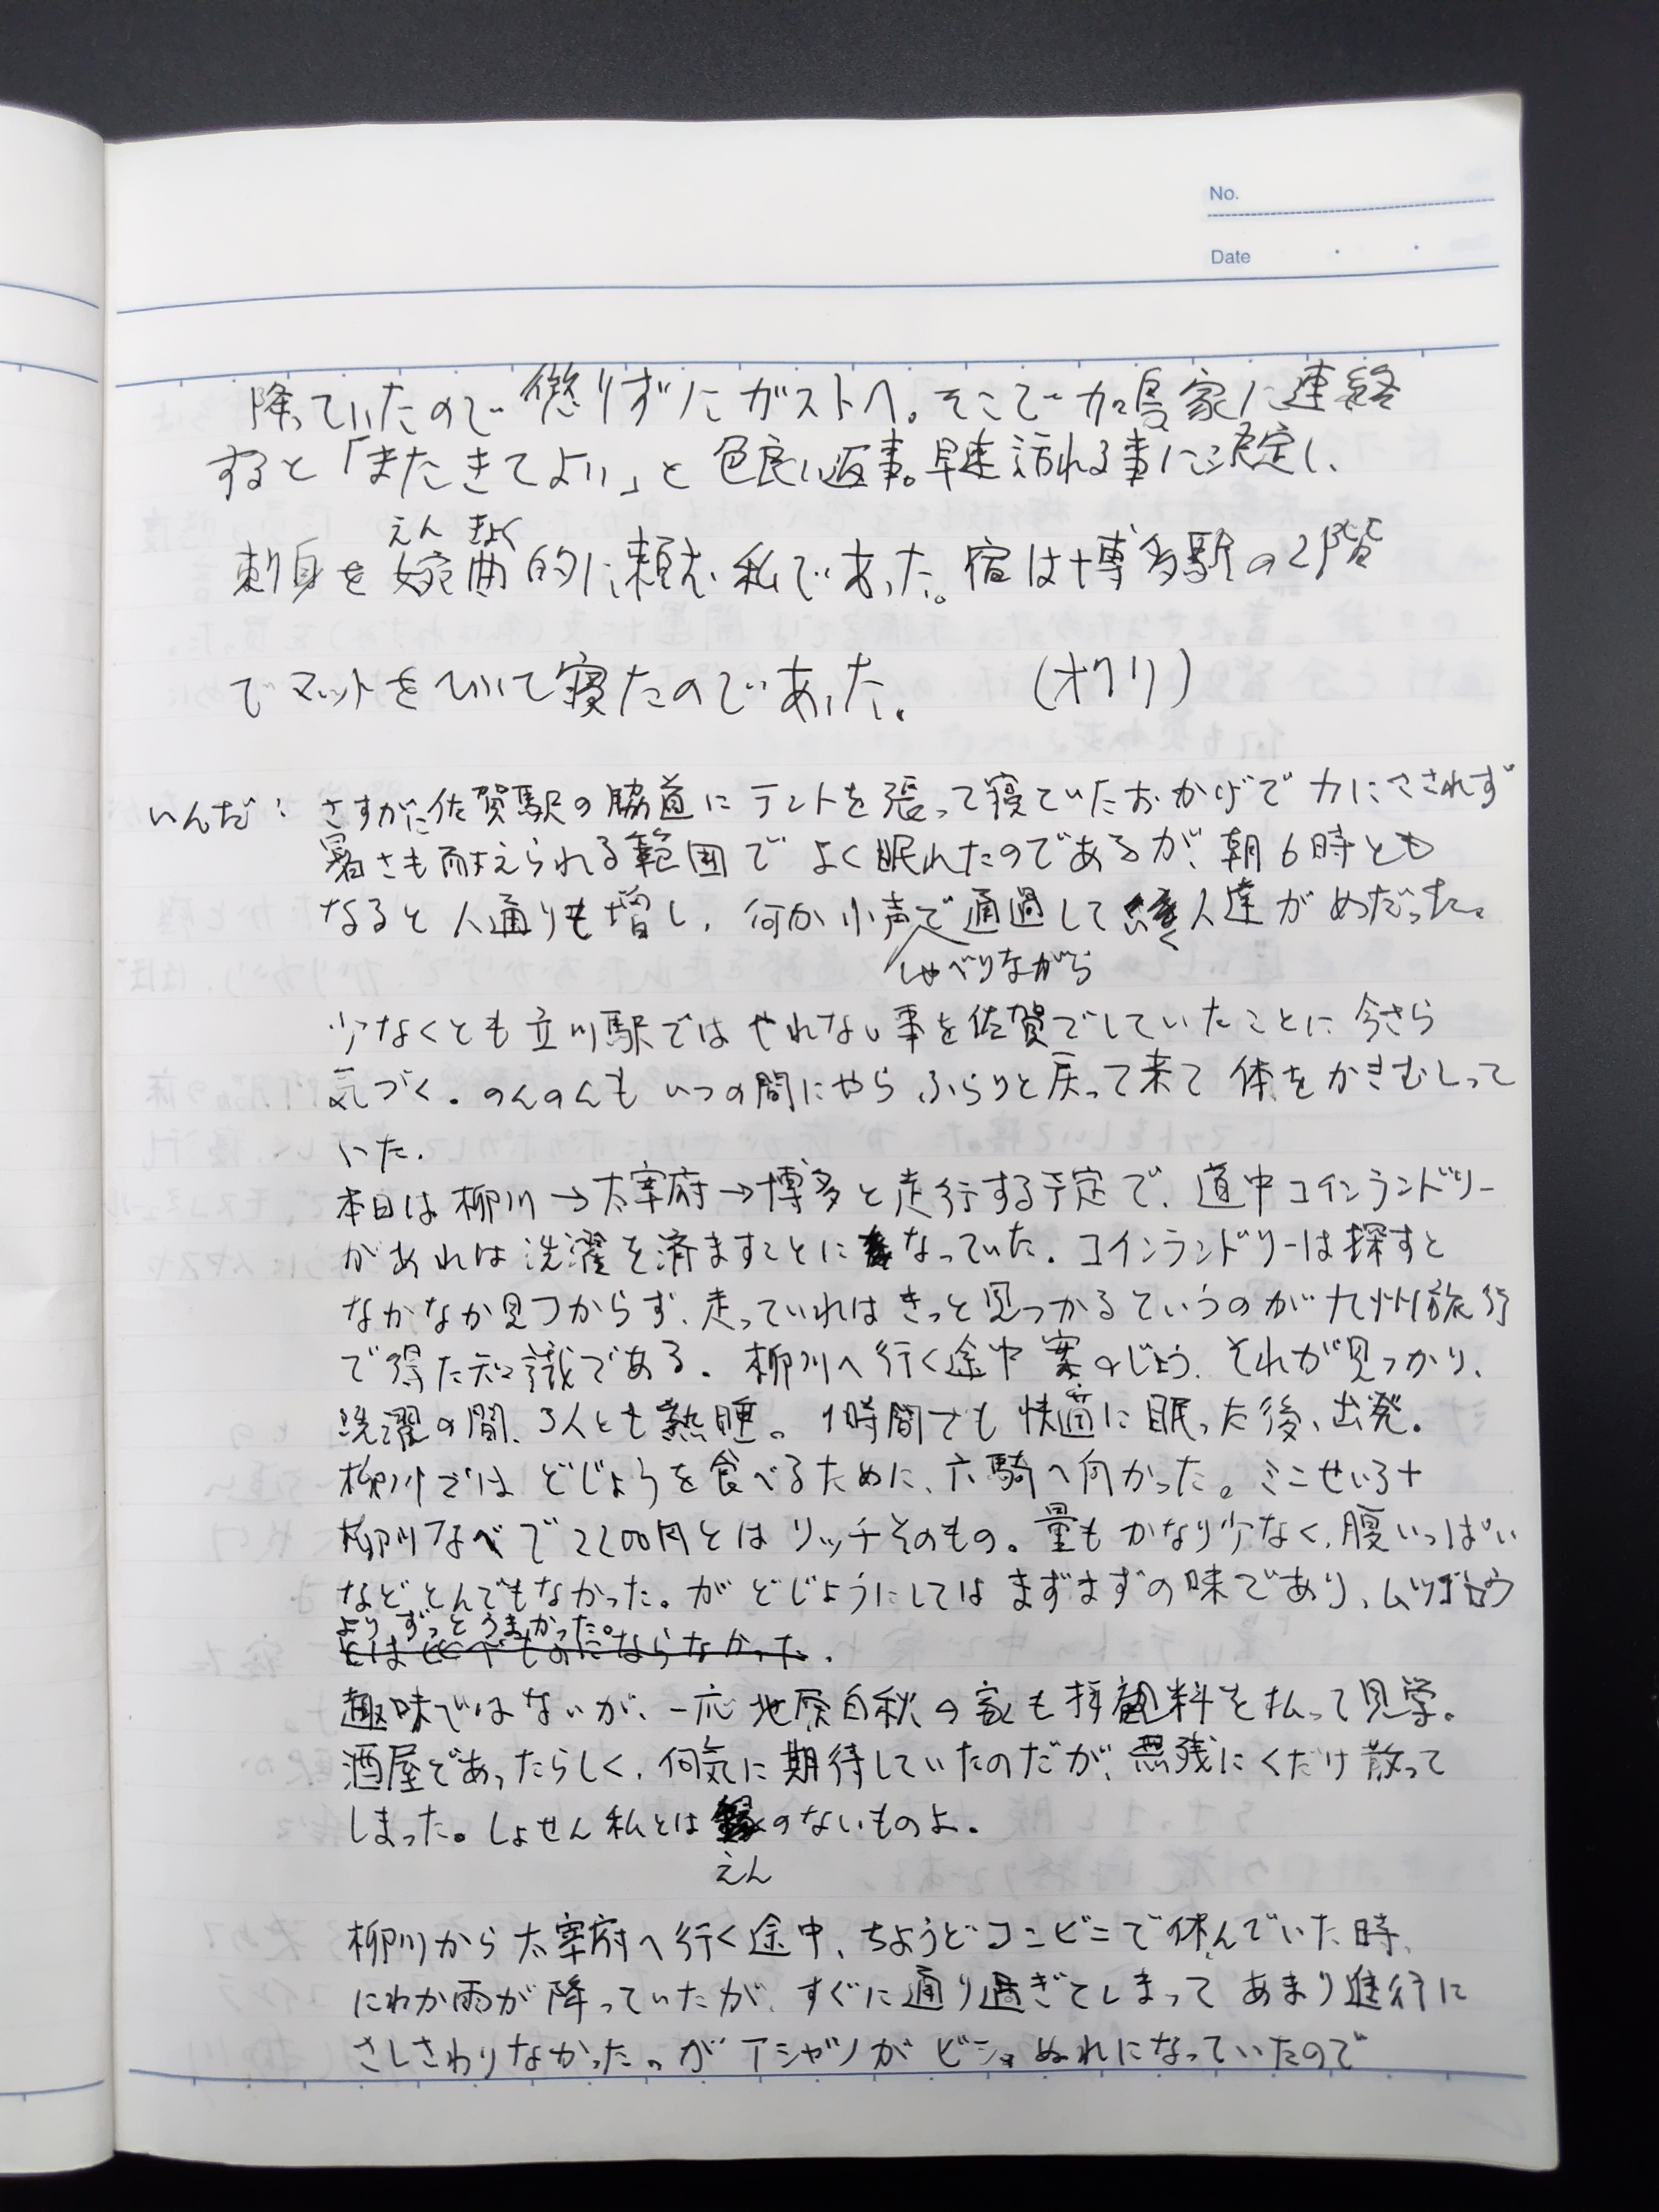 No.
Date
降っていたので懲りずにガストへ。そこで加島家に連絡
すると「またきてよい」と色良い返事。早速訪れる事に決定し、
えんきょく
刺身を婉曲的に頼む私であった。宿は博多駅の2階
でマットをひいて寝たのであった。 (オクリ)
いんだ: さすがに佐賀駅の脇道にテントを張って寝ていたおかげで力にさされず
暑さも耐えられる範囲でよく眠れたのであるが、朝6時とも
なると人通りも増し、何か小声で通過して いく人達がめだった。
しゃべりながら
少なくとも立川駅ではやれない事を佐賀でしていたことに今さら
気づく。のんのんもいつの間にやらふらりと戻って来て体をかきむしって
いた.
本日は柳川→太宰府→博多と走行する予定で、道中コインランドリー
があれば洗濯を済ますことになっていた.コインランドリーは探すと
なかなか見つからず、走っていればきっと見つかるていうのが九州旅行
で得た知識である.柳川へ行く途中案のじょう、それが見つかり、
洗濯の間、3人とも熱睡。1時間でも快適に眠った後、出発.
柳川ではどじょうを食べるために、六騎へ向かった。ミニせいろ+
柳川なべで2200円とはリッチそのもの。量もかなり少なく、腹いっぱい
などとんでもなかった。がどじょうにしてはまずまずの味であり、ムツゴロウ
よりずっとうまかった。
とはくらべものにならなかった.
趣味ではないが、一応北原白秋の家も拝観料を払って見学。
酒屋であったらしく、何気に期待していたのだが、無残にくだけ散って
しまった。しょせん私とは縁のないものよ.
えん
柳川から太宰府へ行く途中、ちょうどコンビニで休んでいた時、
にわか雨が降っていたが、すぐに通り過ぎてしまってあまり進行に
さしさわりなかった。がTシャツがビショぬれになっていたので